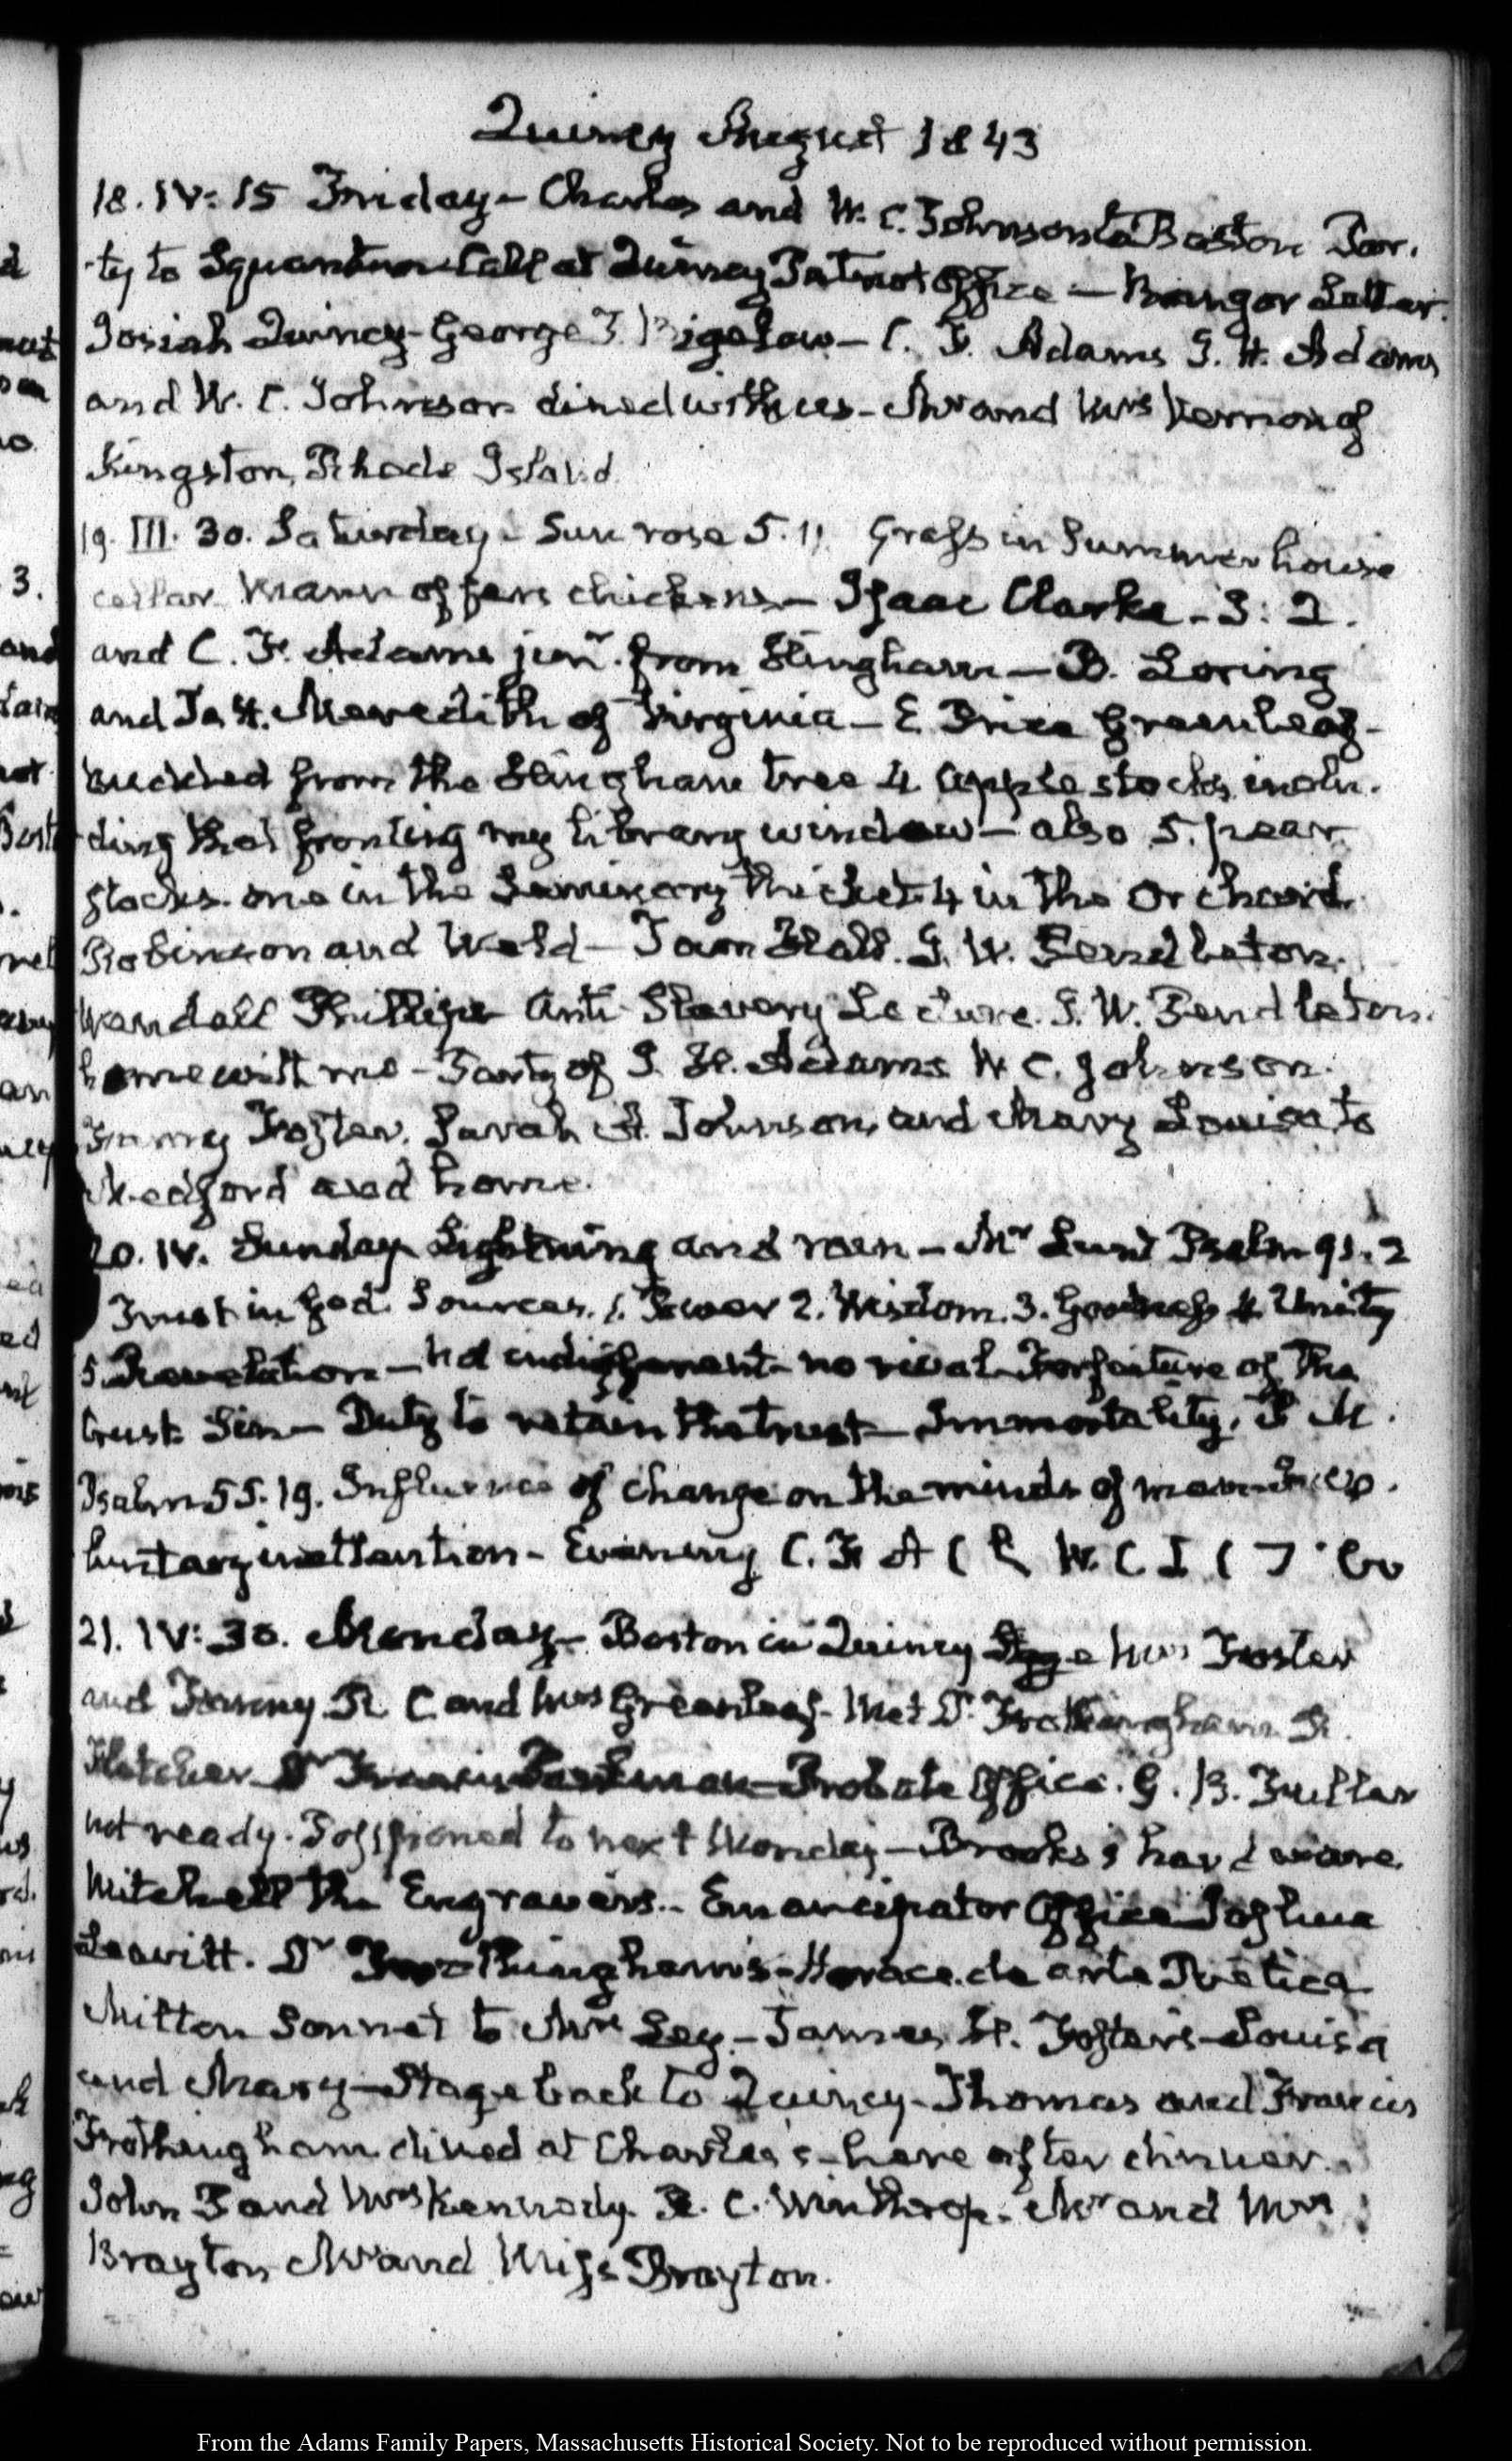 Quincy August 1843
18. IV: 15 Friday - Charles and W. C. Johnson to Boston Par.
ty to Squantum Call at Quincy Patriot Office — Bangor Letter.
Josiah Quincy - George T. Bigelow - C. F. Adams I. H. Adams
and W. C. Johnson dined with us - Mr and Mrs Vernon of
Kingston, Rhode Island
19. III. 30. Saturday - Sun rose 5.11 Grass in Summer house
cellar. Mann offers chickens - Isaac Clarke - J: Q.
and C. F. Adams junr. from Hingham — B. Loring
and Ja H. Meredith of Virginia - E Price Greenleaf -
budded from the Hingham tree 4 apple stocks, inclu.
ding that fronting my library window - also 5. pear
stocks. one in the Seminary thicket 4 in the Orchard.
Robinson and Weld - Town Hall. G. W. Pendleton.
Wendell Phillips Anti Slavery Lecture. G. W. Pendleton.
home with me - Party of I. H. Adams W. C. Johnson.
Fanny Foster, Sarah A. Johnson, and Mary Louisa to
Medford and home.
20. IV. Sunday Lightning and rain - Mr Lunt Psalm 91. 2
Trust in God. Sources. 1. Power 2. Wisdom. 3. Goodness 4 Unity
5 Revelation - no rival Forfeiture of the
trust Sin - Duty to retain the trust - Immortality. P M.
Psalm 55. 19. Influence of change on the minds of men
inattention - Evening C. F A W. C J
21. IV: 30. Monday - Boston in Quincy Stage Mrs Foster
and Fanny. R. C and Mrs Greenleaf - Met Dr Frothingham R.
Fletcher Dr Francis Parkman - Probate Office. G. B. Fuller
not ready. Postponed to next Monday - Brooks's hardware.
Mitchell the Engravers. - Emancipator Office Joshua
Leavitt. Dr Frothingham's - Horace. de arte Poetica
Milton Sonnet to Mrs Ley. - James H. Foster's - Louisa
and Mary - Stage back to Quincy - Thomas and Francis
Frothingham dined at Charles's - here after dinner.
John P and Mrs Kennedy R. C. Winthrop. Mr and Mrs
Brayton Mr and Miss Brayton.
From the Adams Family Papers, Massachusetts Historical Society. Not to be reproduced without permission.